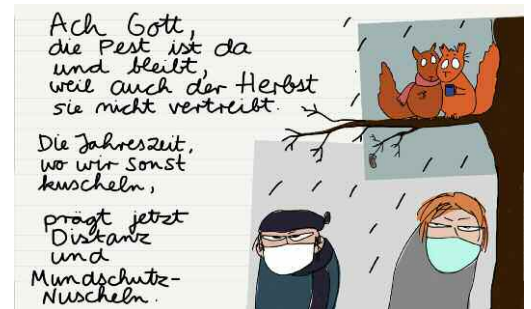 Ach Gott,
die Pest ist da
und bleibt,
weil auch der Herbst
sie nicht vertreibt.
Die Jahreszeit,
wo wir sonst
kuscheln,
prägt jetzt
Distanz
und
Mundschutz-
Nuscheln.